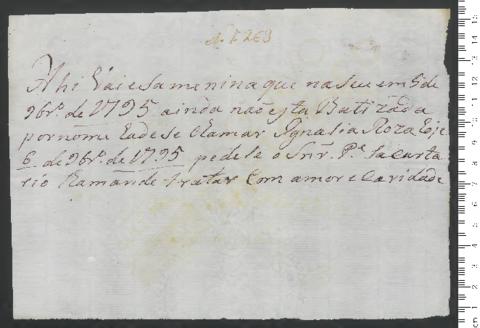 Nº 1269
Ahi Vai esa menina que naseu em 5 de
9br.º de 1795 ainda não esta Batizada
por nome hade se Clamar Ignasia Roza Oje
6 de 9br.º de 1795 pede se o Snr. P.e Sacurta
rio Raman de tratar Com amor e Caridade